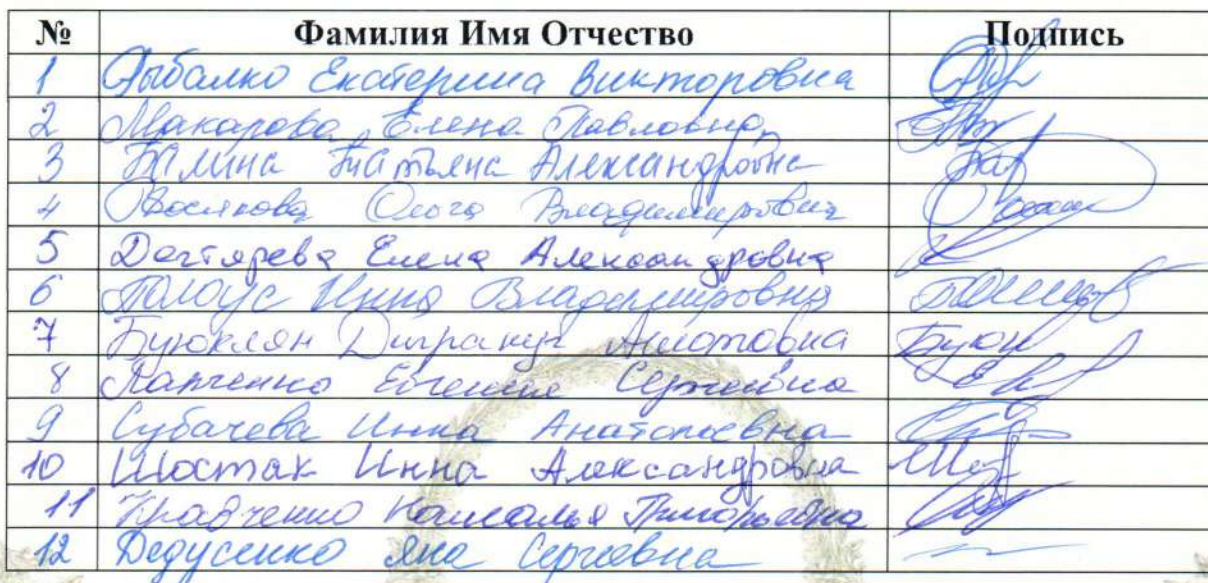 № Фамилия Имя Отчество Подпись
1 Рыбалко Екатерина Викторовна
2 Макарова Елена Павловна
3 Галина Татьяна Александровна
4 Ольга Владимировна
5 Дегтярева Елена Александровна
6 Инна Владимировна
7 Буюклян Ашотовна Буюк
8 Евгения Сергеевна
9 Субачева Инна Анатольевна
10 Шостак Инна Александровна
11 Кравченко Наталья Григорьевна
12 Дедусенко Яна Сергеевна